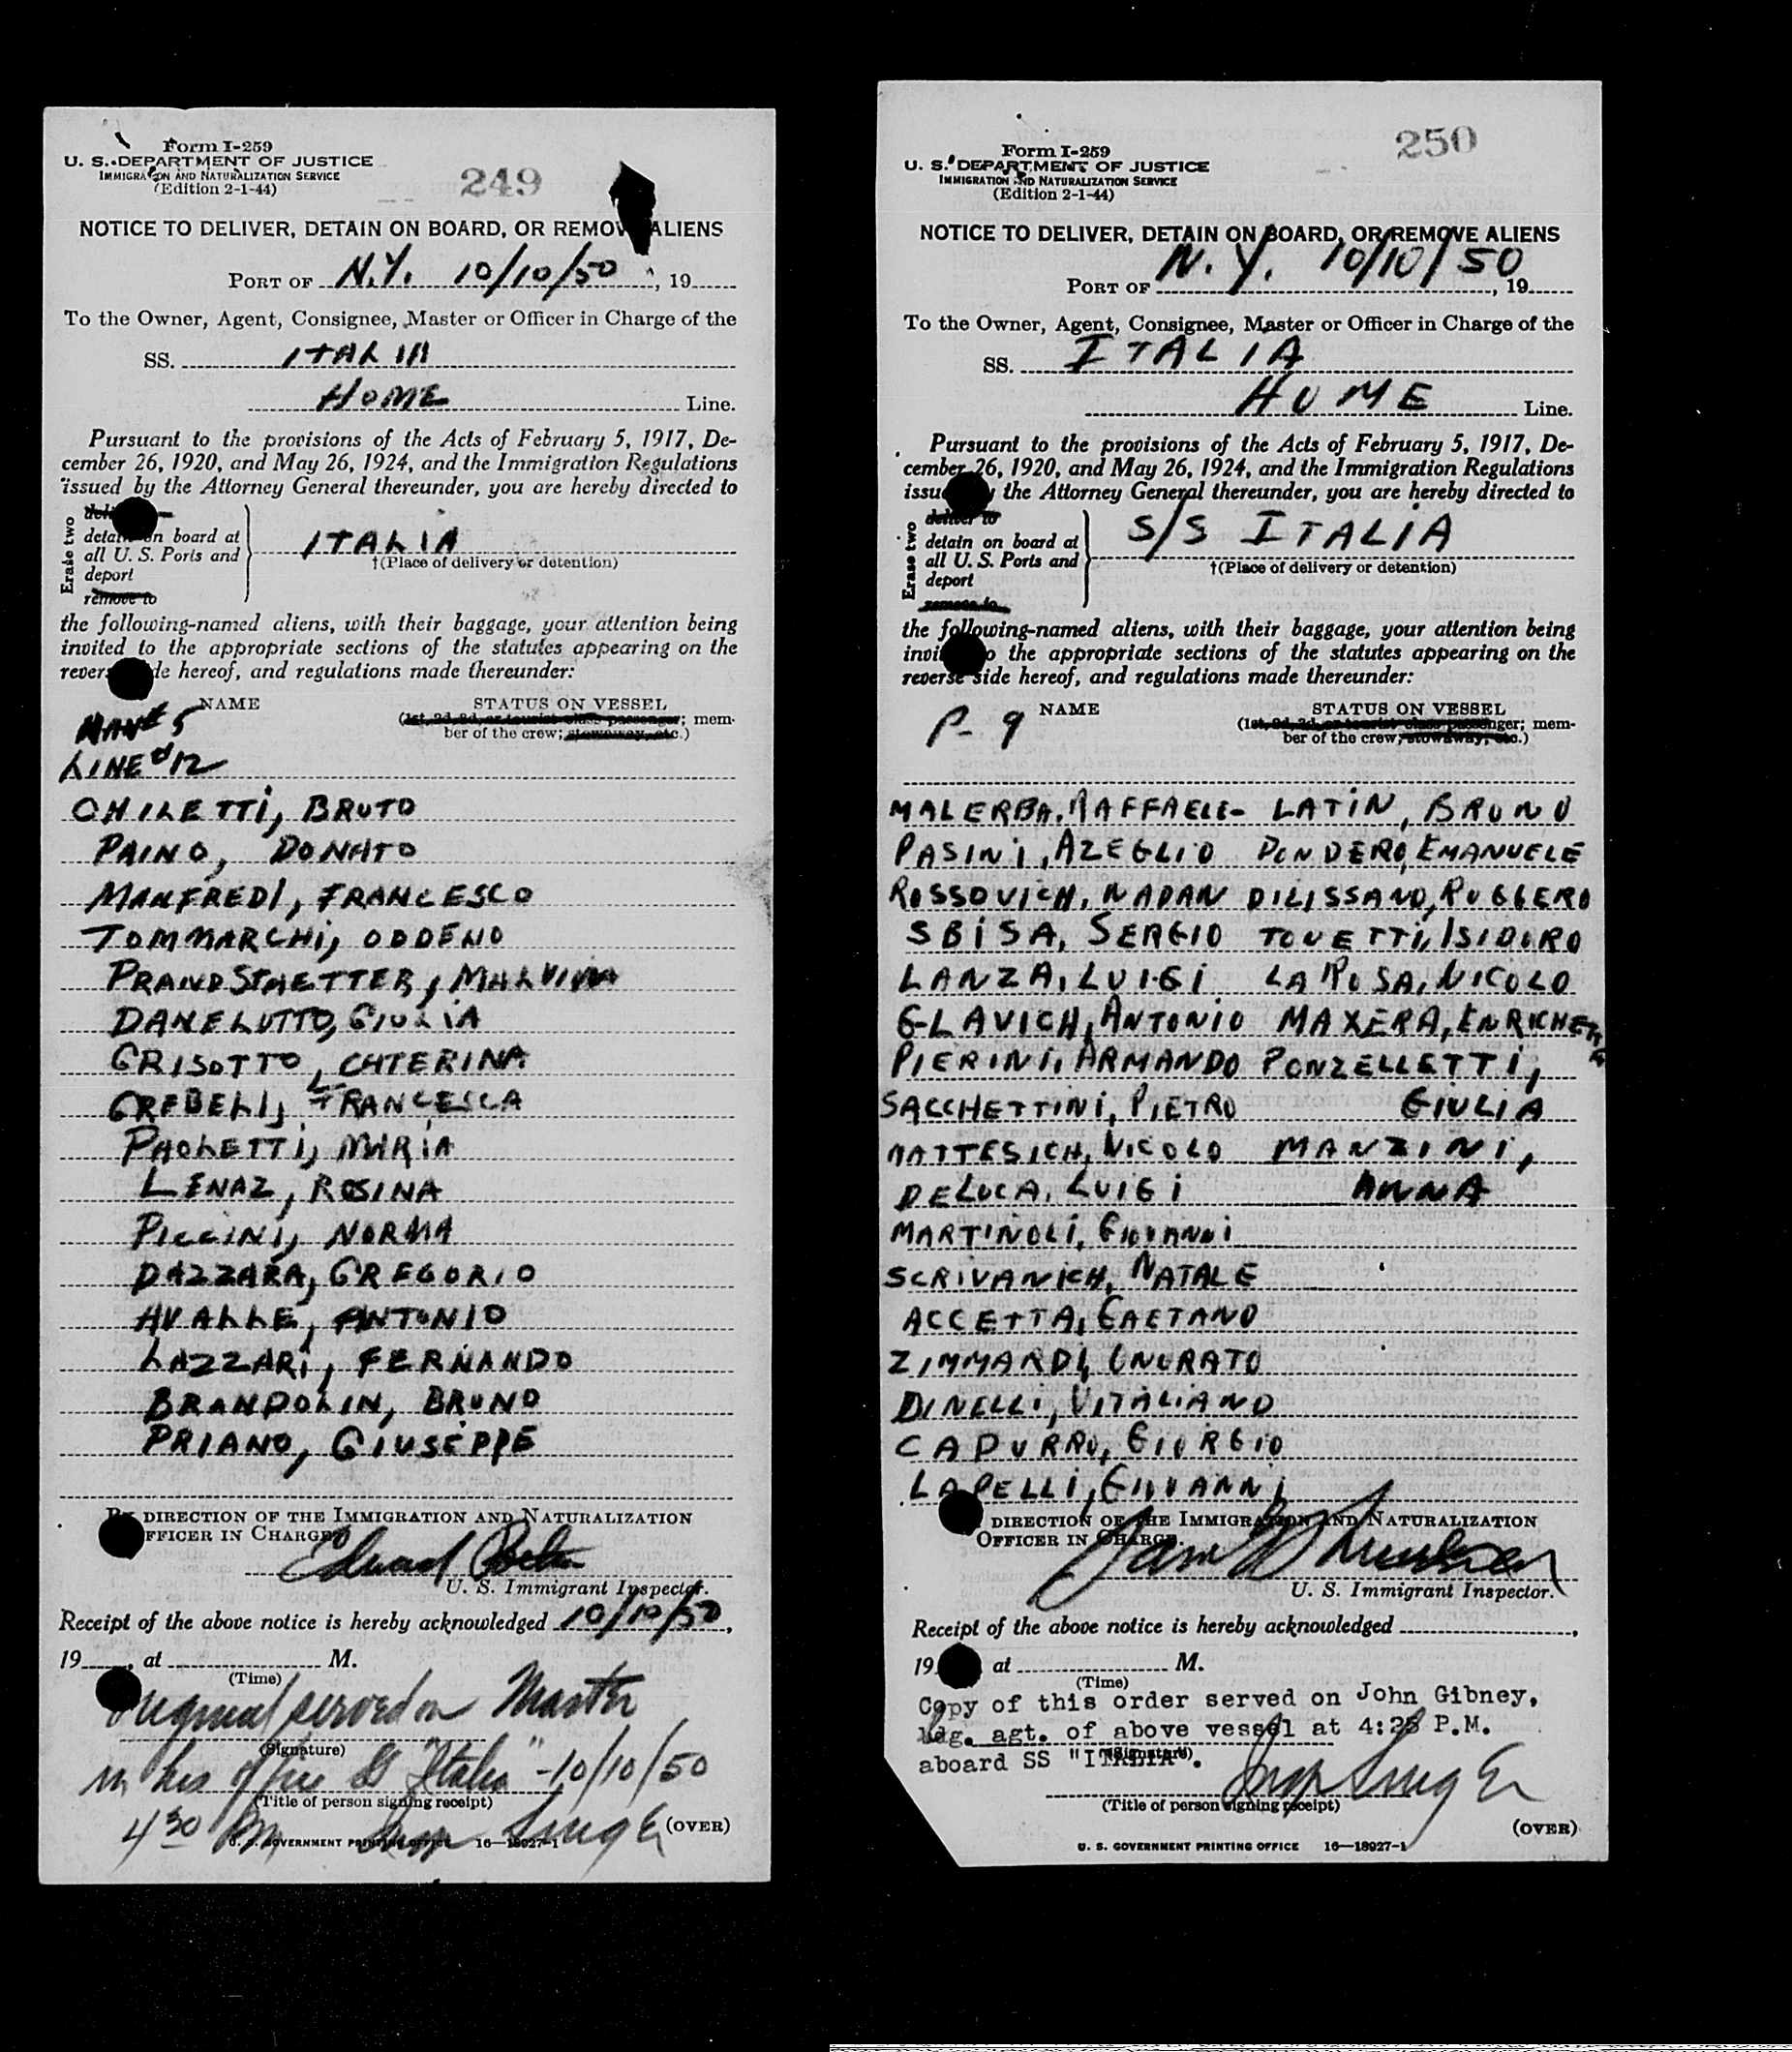 Form I-259
U. S. DEPARTMENT OF JUSTICE
IMMIGRATION AND NATURALIZATION SERVICE
(Edition 2-1-44)
249
NOTICE TO DELIVER, DETAIN ON BOARD, OR REMOVE ALIENS
PORT OF N.Y. 10/10/50, 19
To the Owner, Agent, Consignee, Master or Officer in Charge of the
SS. ITALIA
HOME Line.
Pursuant to the provisions of the Acts of February 5, 1917, De-
cember 26, 1920, and May 26, 1924, and the Immigration Regulations
issued by the Attorney General thereunder, you are hereby directed to
Erase two
detain on board at
all U. S. Ports and
deport
remove to
ITALIA
†(Place of delivery or detention)
the following-named aliens, with their baggage, your attention being
invited to the appropriate sections of the statutes appearing on the
reverse side hereof, and regulations made thereunder:
NAME STATUS ON VESSEL
(1st, 2d, 3d, or tourist class passenger; mem-
ber of the crew; stowaway, etc.)
5
LINE #12
CHILETTI, BRUTO
PAINO, DONATO
MANFREDI, FRANCESCO
TOMMARCHI, ODDENO
PRANDSTAETTER, MALVINA
DANELUTTO, GIULIA
GRISOTTO, CATERINA
GREBELI, FRANCESCA
PAOLETTI, MARIA
LENAZ, ROSINA
PICCINI, NORMA
DAZZARA, GREGORIO
AVALLE, ANTONIO
LAZZARI, FERNANDO
BRANDOLIN, BRUNO
PRIANO, GIUSEPPE
BY DIRECTION OF THE IMMIGRATION AND NATURALIZATION
OFFICER IN CHARGE
Edward
U. S. Immigrant Inspector.
Receipt of the above notice is hereby acknowledged 10/10/50,
19, at M.
(Time)
Original served on Master
(Signature)
in his office SS "Italia" - 10/10/50
(Title of person signing receipt)
4 30 Pm
(OVER)
U. S. GOVERNMENT PRINTING OFFICE 16—18927-1
Form I-259
U. S. DEPARTMENT OF JUSTICE
IMMIGRATION AND NATURALIZATION SERVICE
(Edition 2-1-44)
250
NOTICE TO DELIVER, DETAIN ON BOARD, OR REMOVE ALIENS
PORT OF N.Y. 10/10/50, 19
To the Owner, Agent, Consignee, Master or Officer in Charge of the
SS. ITALIA
HOME Line.
Pursuant to the provisions of the Acts of February 5, 1917, De-
cember 26, 1920, and May 26, 1924, and the Immigration Regulations
issued by the Attorney General thereunder, you are hereby directed to
Erase two
deliver to
detain on board at
all U. S. Ports and
deport
remove to
S/S ITALIA
†(Place of delivery or detention)
the following-named aliens, with their baggage, your attention being
invited to the appropriate sections of the statutes appearing on the
reverse side hereof, and regulations made thereunder:
P-9 NAME STATUS ON VESSEL
(1st, 2d, 3d, or tourist class passenger; mem-
ber of the crew; stowaway, etc.)
MALERBA, RAFFAELE- LATIN, BRUNO
PASINI, AZEGLIO PONDERO, EMANUELE
ROSSOVICH, NADAN DILISSANO, RUGGERO
SBISA, SERGIO TOVETTI, ISIDORO
LANZA, LUIGI LA ROSA, NICOLO
GLAVICH, ANTONIO MAXERA, ENRICHETTA
PIERINI, ARMANDO PONZELLETTI,
SACCHETTINI, PIETRO GIULIA
MATTESICH, NICOLO MANZINI,
DELUCA, LUIGI ANNA
MARTINOLI, GIOVANNI
SCRIVANICH, NATALE
ACCETTA, GAETANO
ZIMMARDI, ONORATO
DINELLI, VITALIANO
CAPURRO, GIORGIO
LAPELLI, GIOVANNI
DIRECTION OF THE IMMIGRATION AND NATURALIZATION
OFFICER IN CHARGE.
U. S. Immigrant Inspector.
Receipt of the above notice is hereby acknowledged ,
19 at M.
(Time)
Copy of this order served on John Gibney,
bdg. agt. of above vessel at 4:25 P.M.
aboard SS "ITALIA".
(Signature)
(Title of person signing receipt)
(OVER)
U. S. GOVERNMENT PRINTING OFFICE 16—18927-1